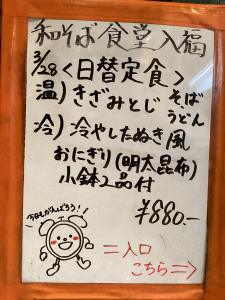 和そば食堂入福
3/28<日替定食>
温)きざみとじ そば
うどん
冷)冷やしたぬき風
おにぎり(明太昆布)
小鉢2品付
¥880.-
今日もがんばろう!!
=入口
こちら=>